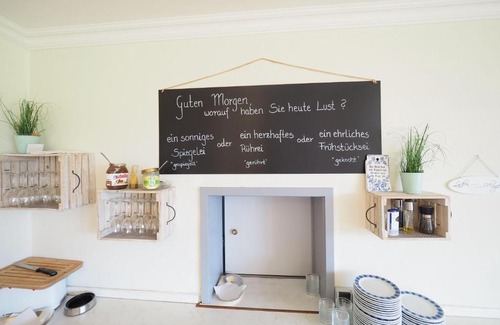 Guten Morgen,
worauf haben Sie heute Lust?
ein sonniges
Spiegelei
oder
ein herzhaftes
Rührei
"gerührt"
oder
ein ehrliches
Frühstücksei
"gekocht"
nutella